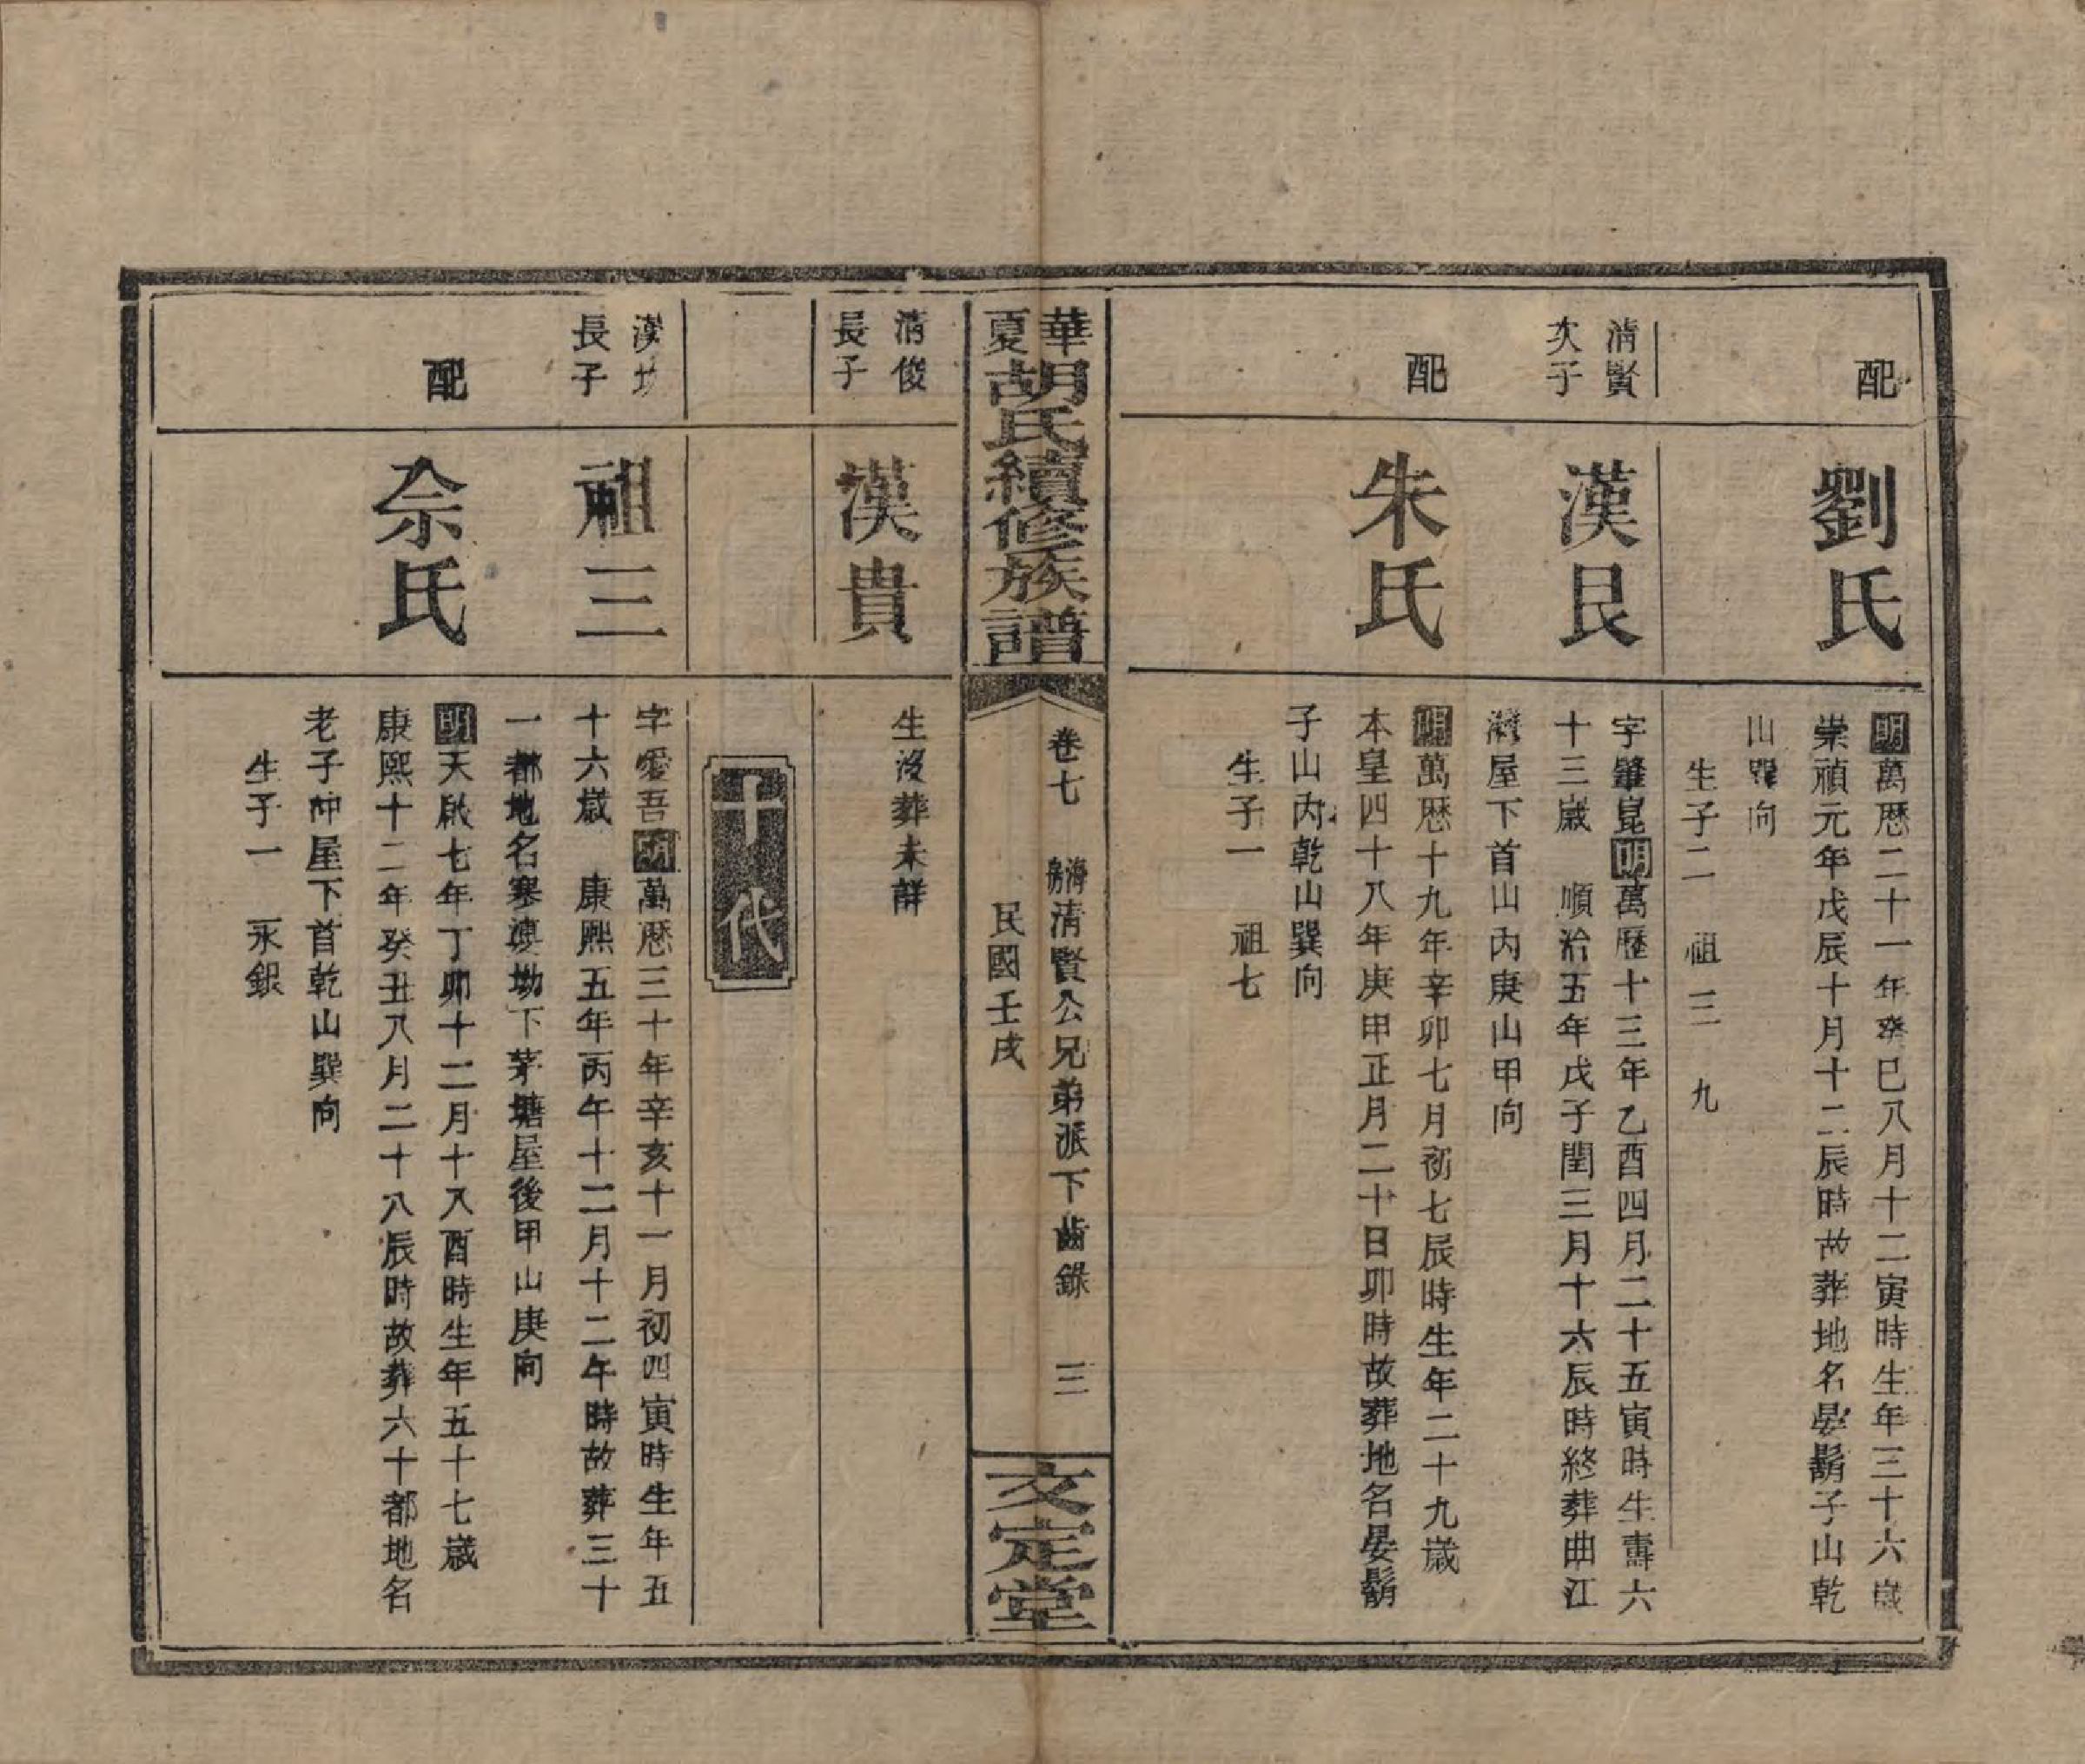 配
劉氏
明萬歷二十一年癸巳八月十二寅時生年三十六歲
崇禎元年戊辰十月十二辰時故葬地名晏鬍子山乾
山巽向
生子二　祖三　九
清賢
次子
漢艮
字肇崑明萬歷十三年乙酉四月二十五寅時生壽六
十三歲　順治五年戊子閏三月十六辰時終葬曲江
灣屋下首山內庚山甲向
配
朱氏
明萬歷十九年辛卯七月初七辰時生年二十九歲
本皇四十八年庚申正月二十日卯時故葬地名晏鬍
子山內乾山巽向
生子一　祖七
華夏胡氏續修族譜
卷七　海房清賢公兄弟派下齒錄　三
民國壬戌
文定堂
清俊
長子
漢貴
生沒葬未詳
十代
漢
長子
祖三
字愛吾明萬歷三十年辛亥十一月初四寅時生年五
十六歲　康熙五年丙午十二月十二午時故葬三十
一都地名寒婆坳下茅塘屋後甲山庚向
配
佘氏
明天啟七年丁卯十二月十八酉時生年五十七歲
康熙十二年癸丑八月二十八辰時故葬六十都地名
老子冲屋下首乾山巽向
生子一　永銀